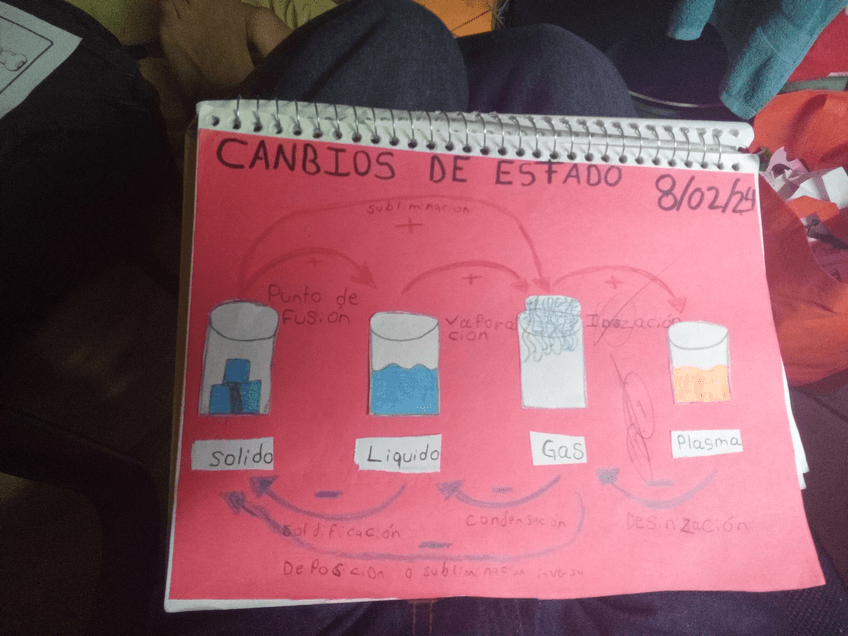 CANBIOS DE ESTADO
8/02/24
sublimacion
+
+
+
+
Punto de
Fusión
Vapora
cion
Solido
Liquido
Gas
Plasma
-
-
-
soldificación
condensación
-
Deposicion o sublimacion inversa